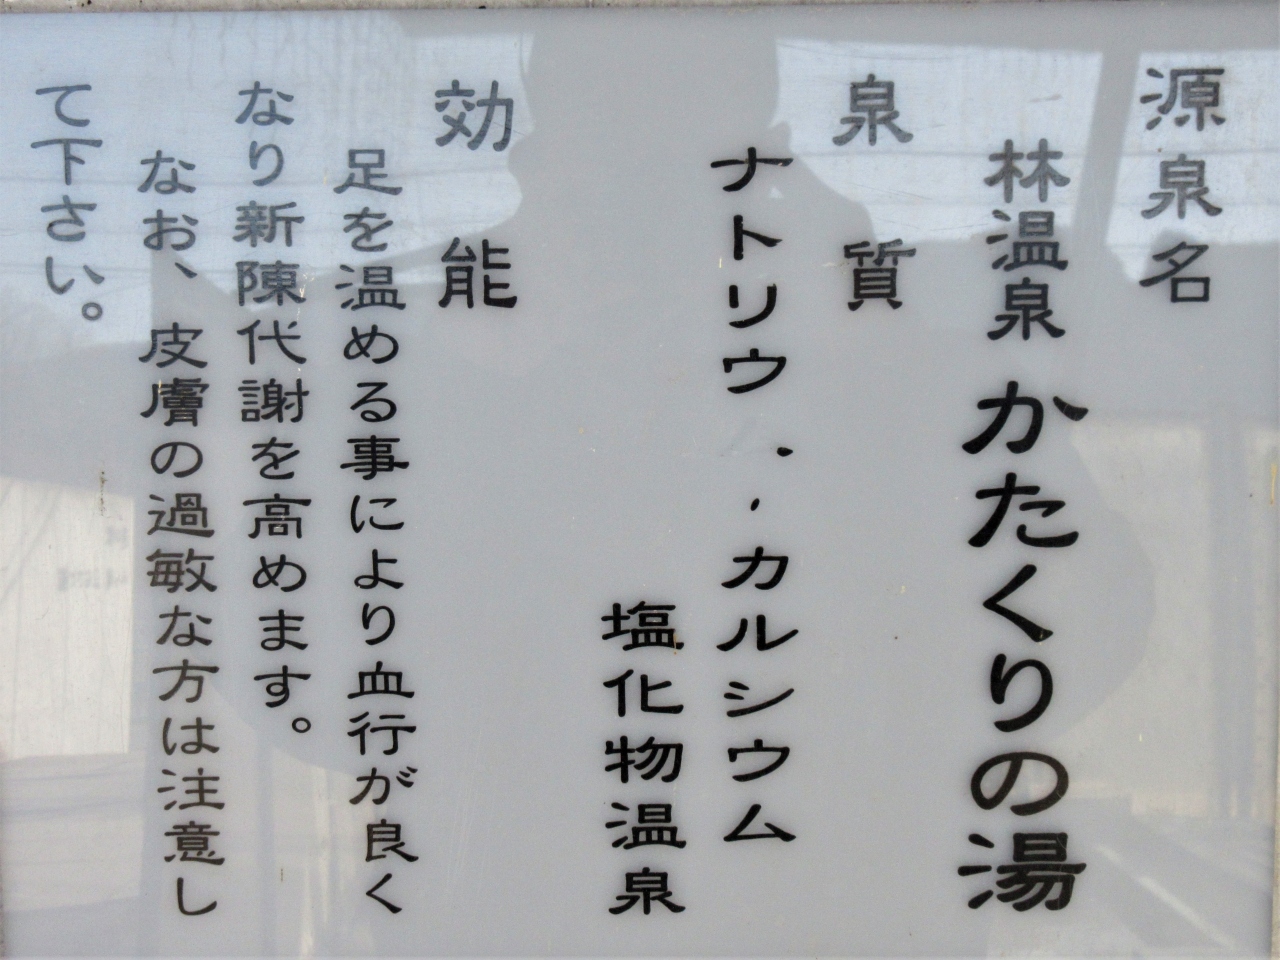 源泉名
林温泉 かたくりの湯
泉質
ナトリウ ・カルシウム
塩化物温泉
効能
足を温める事により血行が良く
なり新陳代謝を高めます。
なお、皮膚の過敏な方は注意し
て下さい。